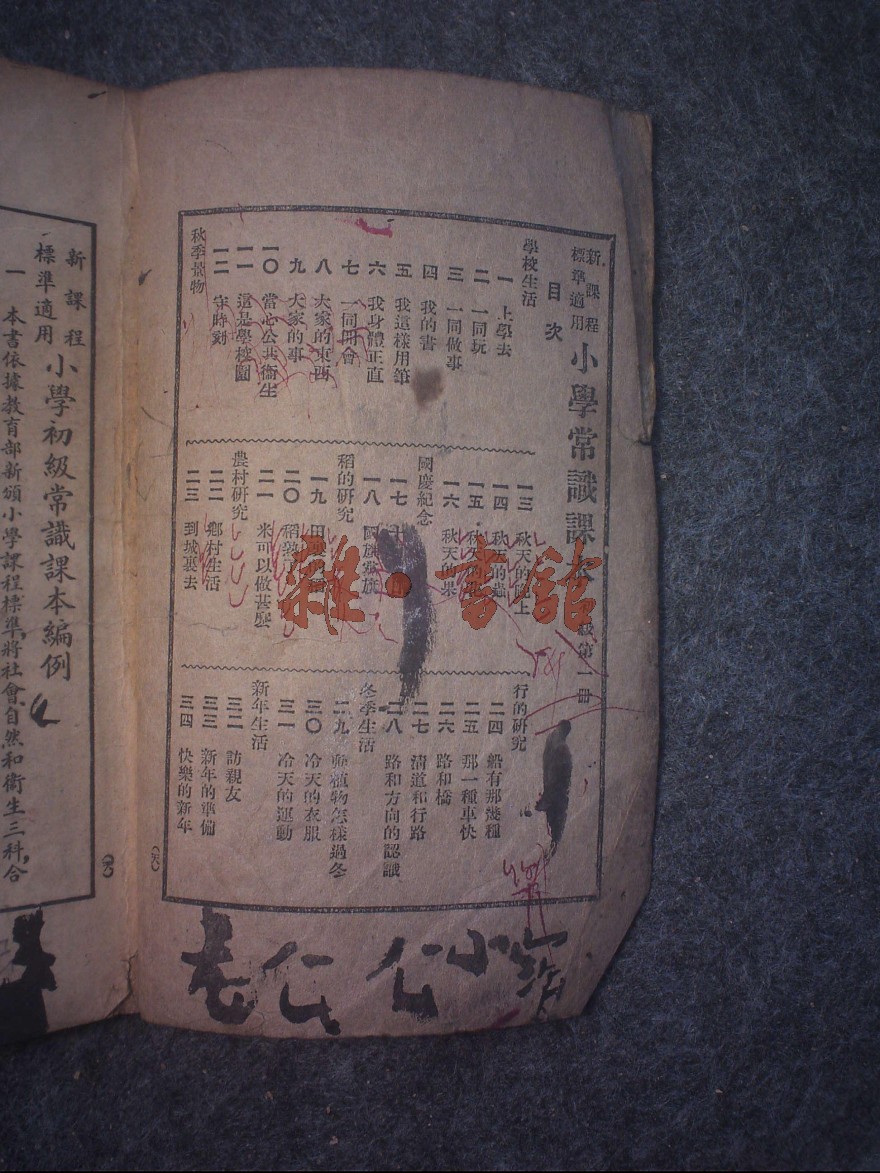 新課程
標準適用
小學常識課本
級第一冊
目次
學校生活
一 上學去
二 一同玩
三 一同做事
四 我的書
五 我這樣用筆
六 我身體正直
七 一同開會
八 大家的東西
九 大家的事
一〇 當心公共衞生
一一 這是學校園
一二 守時刻
秋季景物
一三 秋天的
上
一四 秋天的蟲
一五 秋天的
一六 秋天的果
國慶紀念
一七
一八 國旗黨旗
稻的研究
一九 田
二〇 稻熟了
二一 米可以做甚麽
農村研究
二二 鄉村生活
二三 到城裏去
行的研究
二四 船有那幾種
二五 那一種車快
二六 路和橋
二七 清道和行路
二八 路和方向的認識
冬季生活
二九 動植物怎樣過冬
三〇 冷天的衣服
三一 冷天的運動
新年生活
三二 訪親友
三三 新年的準備
三四 快樂的新年
新課程
標準適用
小學初級常識課本編例
一 本書依據教育部新頒小學課程標準,將社會自然和衞生三科,合
雜·書館